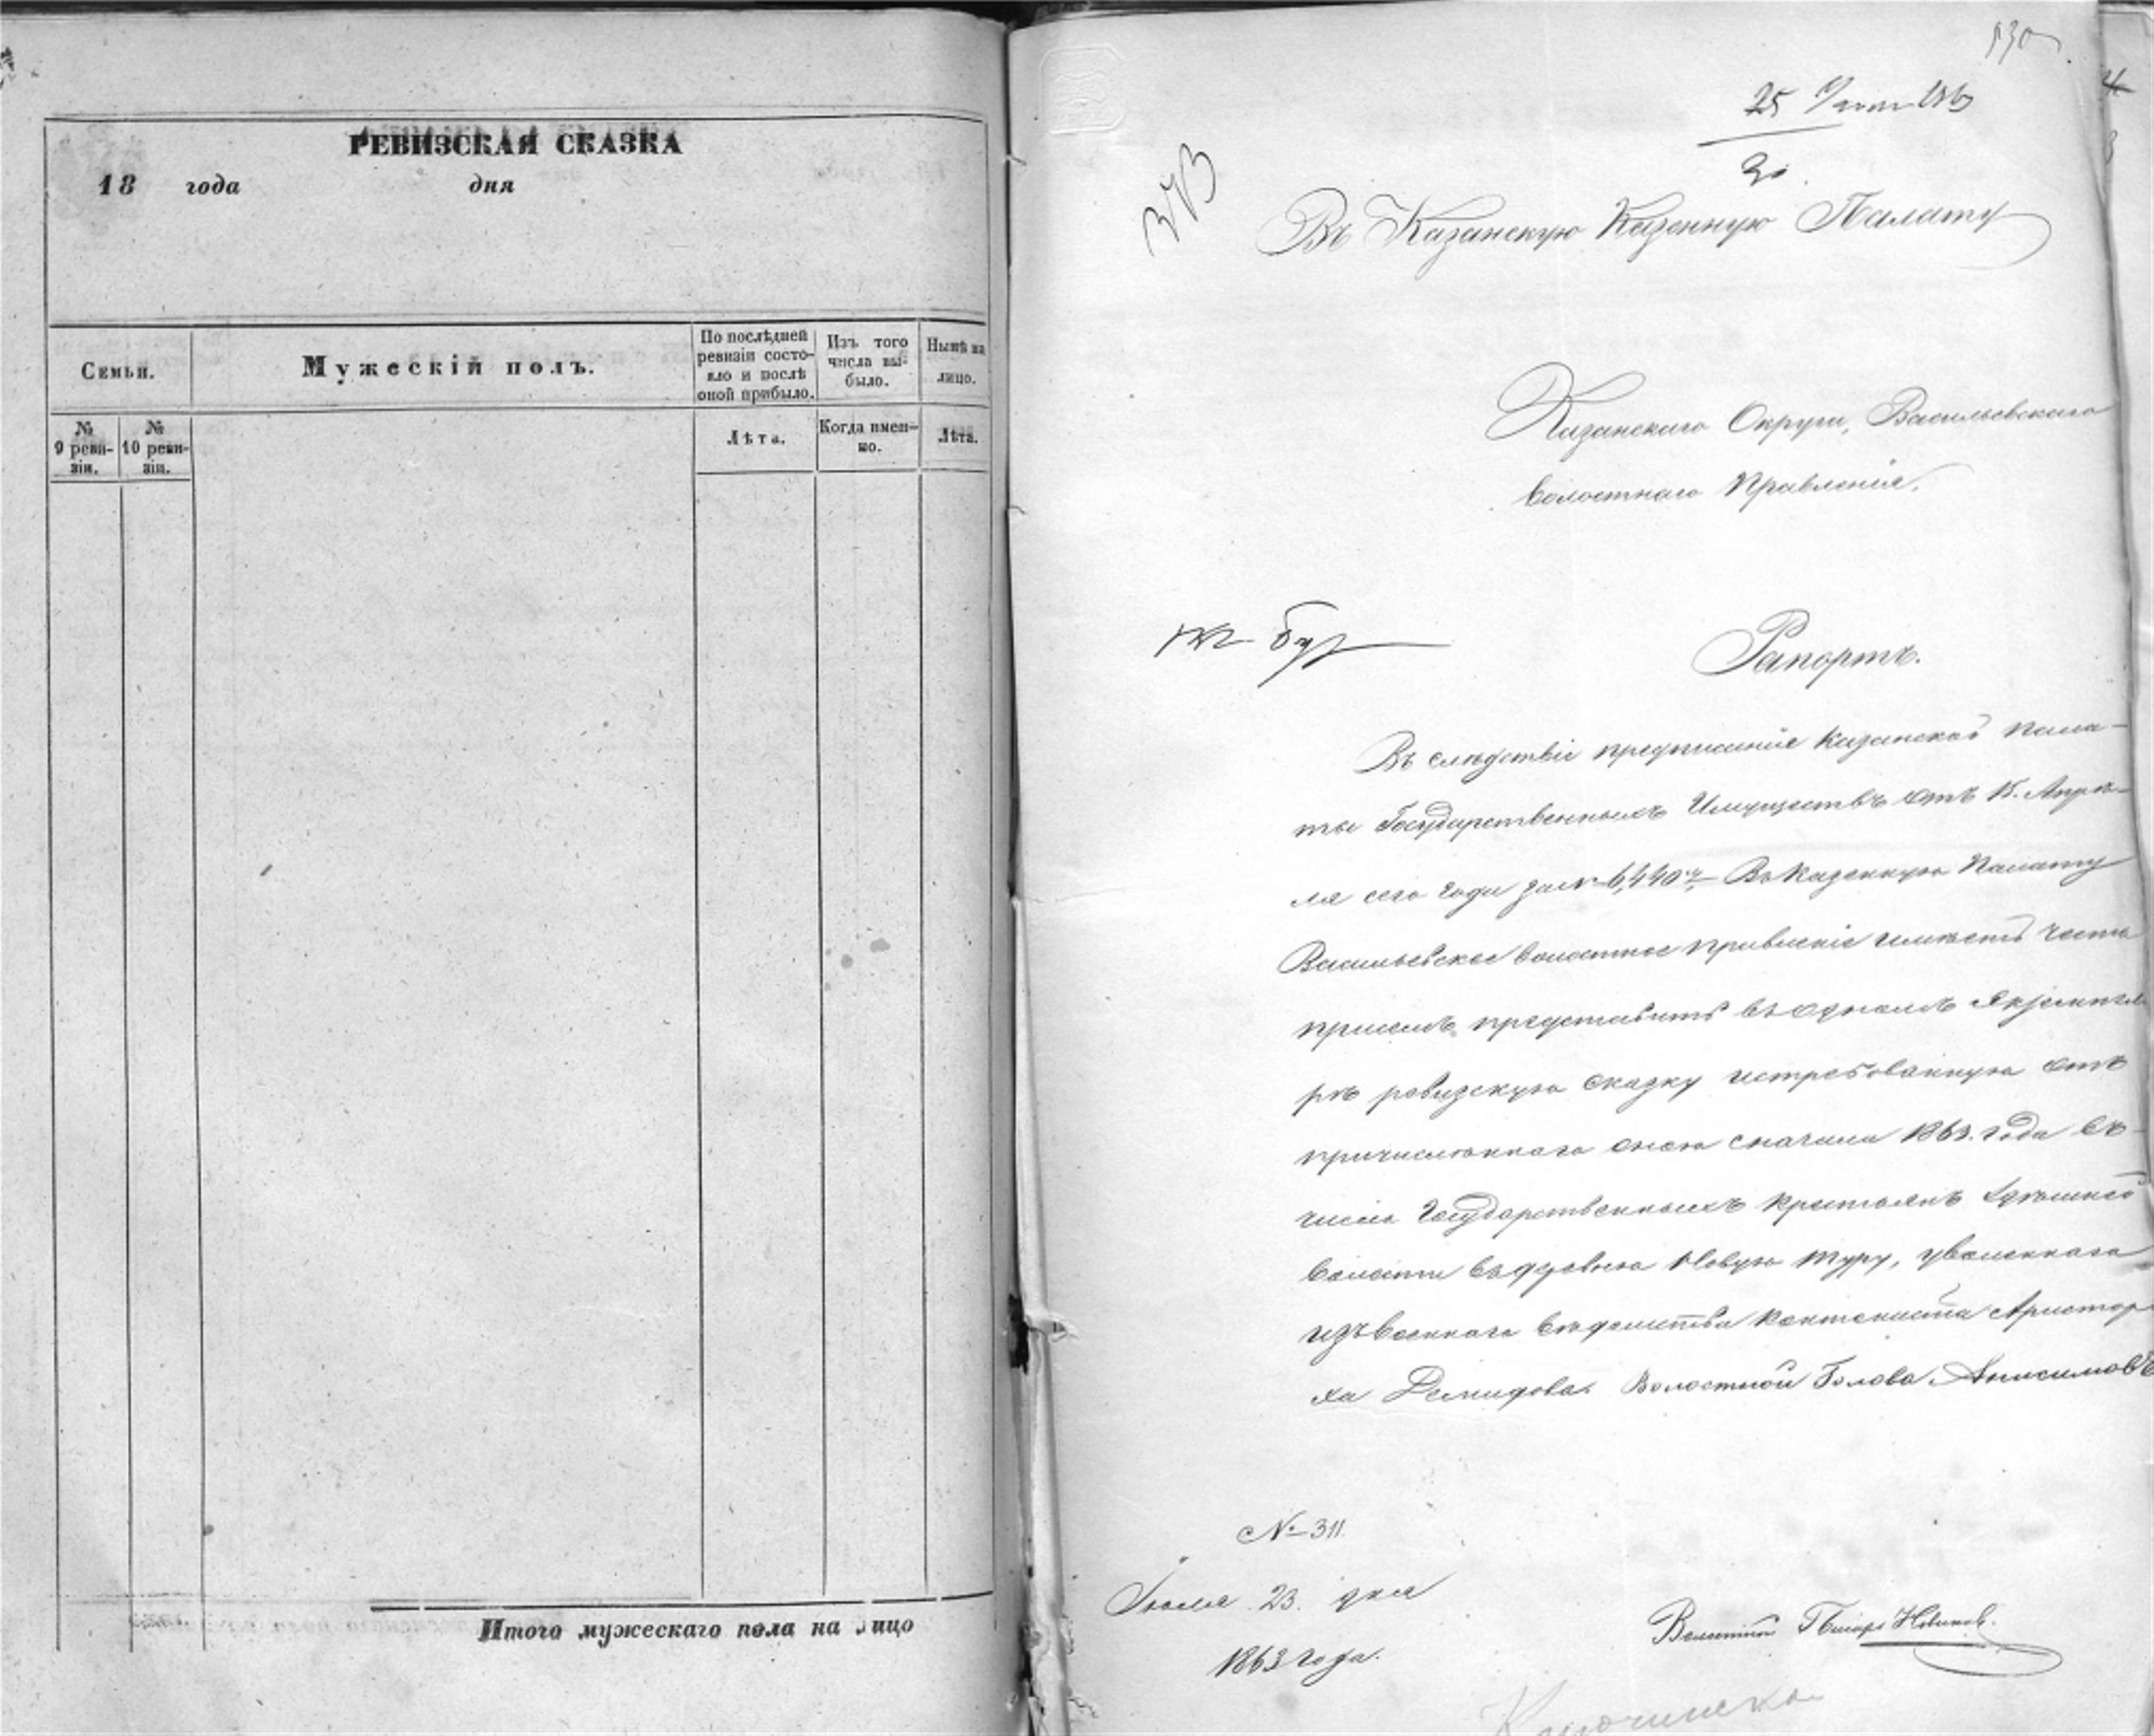 РЕВИЗСКАЯ СКАЗКА
18 года дня
Семьи.
Мужескiй полъ.
По послѣдней
ревизiи состо-
яло и послѣ
оной прибыло.
Изъ того
числа вы-
было.
Нынѣ на
лицо.
№
9 реви-
зiи.
№
10 реви-
зiи.
Лѣта.
Когда имен-
но.
Лѣта.
Итого мужескаго пола на лицо
530
25
Въ Казанскую Казенную Палату
Казанскаго Округа, Васильевскаго
волостнаго Правленiя,
Рапортъ.
Въ слѣдствiе предписанiя Казанской пала-
ты Государственныхъ Имуществъ отъ 15. Апрѣ-
ля сего года за № 6,440 м, Въ Казенную Палату
Васильевское волостное правленiе имѣетъ честь
при семъ представить въ одномъ Экземпля-
рѣ ревизскую сказку истребованную отъ
причисленнаго онаго сначала 1863. года въ
число Государственныхъ крестьянъ здѣшней
волости въ деревню Новую Туру, уволеннаго
изъ военнаго вѣдомства кантониста Аристар-
ха Демидова. Волостной Голова Анисимовъ
№ 311.
Iюля 23. дня
1863 года.
Волостной Писарь Новиков.